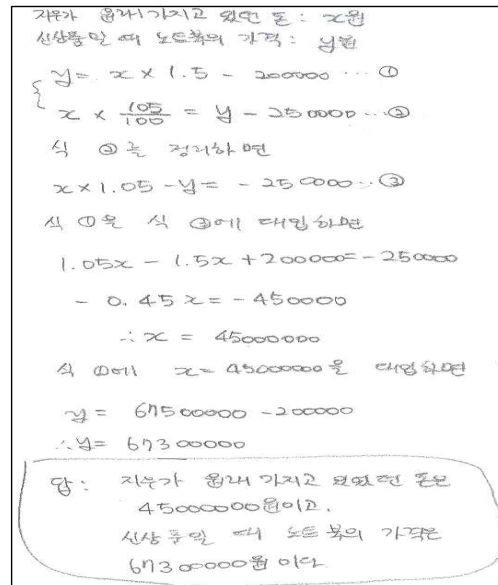 지우가 원래 가지고 있던 돈 : x원
신상품일 때 노트북의 가격 : y원
{ y = x × 1.5 - 200000 … ①
x × 105/100 = y - 250000 … ②
식 ②를 정리하면
x × 1.05 - y = - 250000 … ③
식 ①을 식 ③에 대입하면
1.05x - 1.5x + 200000 = - 250000
- 0.45x = - 450000
∴ x = 45000000
식 ①에 x = 45000000을 대입하면
y = 67500000 - 200000
∴ y = 67300000
답 : 지우가 원래 가지고 있었던 돈은
45000000원이고,
신상품일 때 노트북의 가격은
67300000원이다